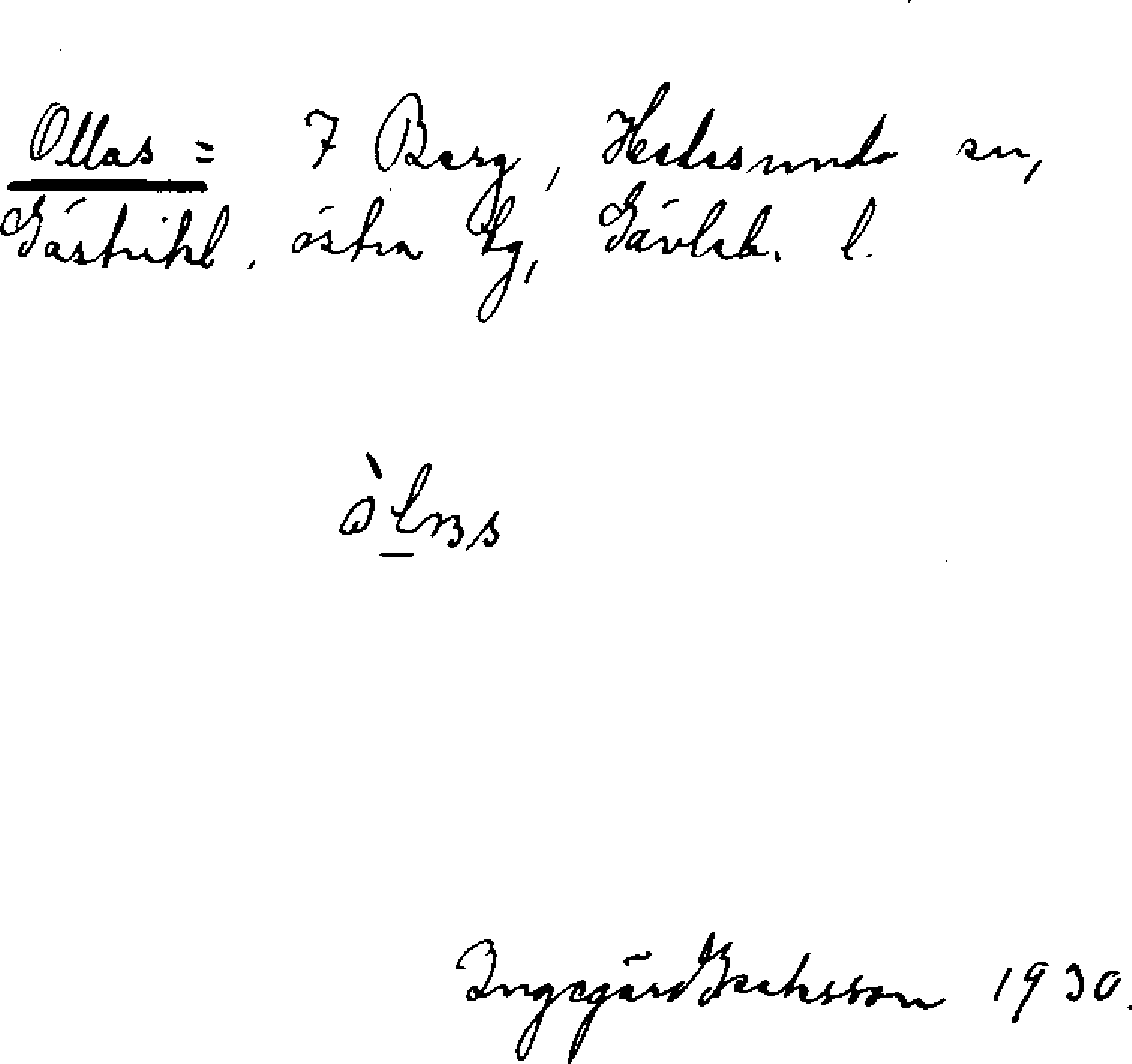 Ollas = 7 Berg, Hedesunda sn,
Gästrikl. östra tg, Gävleb. l.
Ingegärd Isaksson 1930.